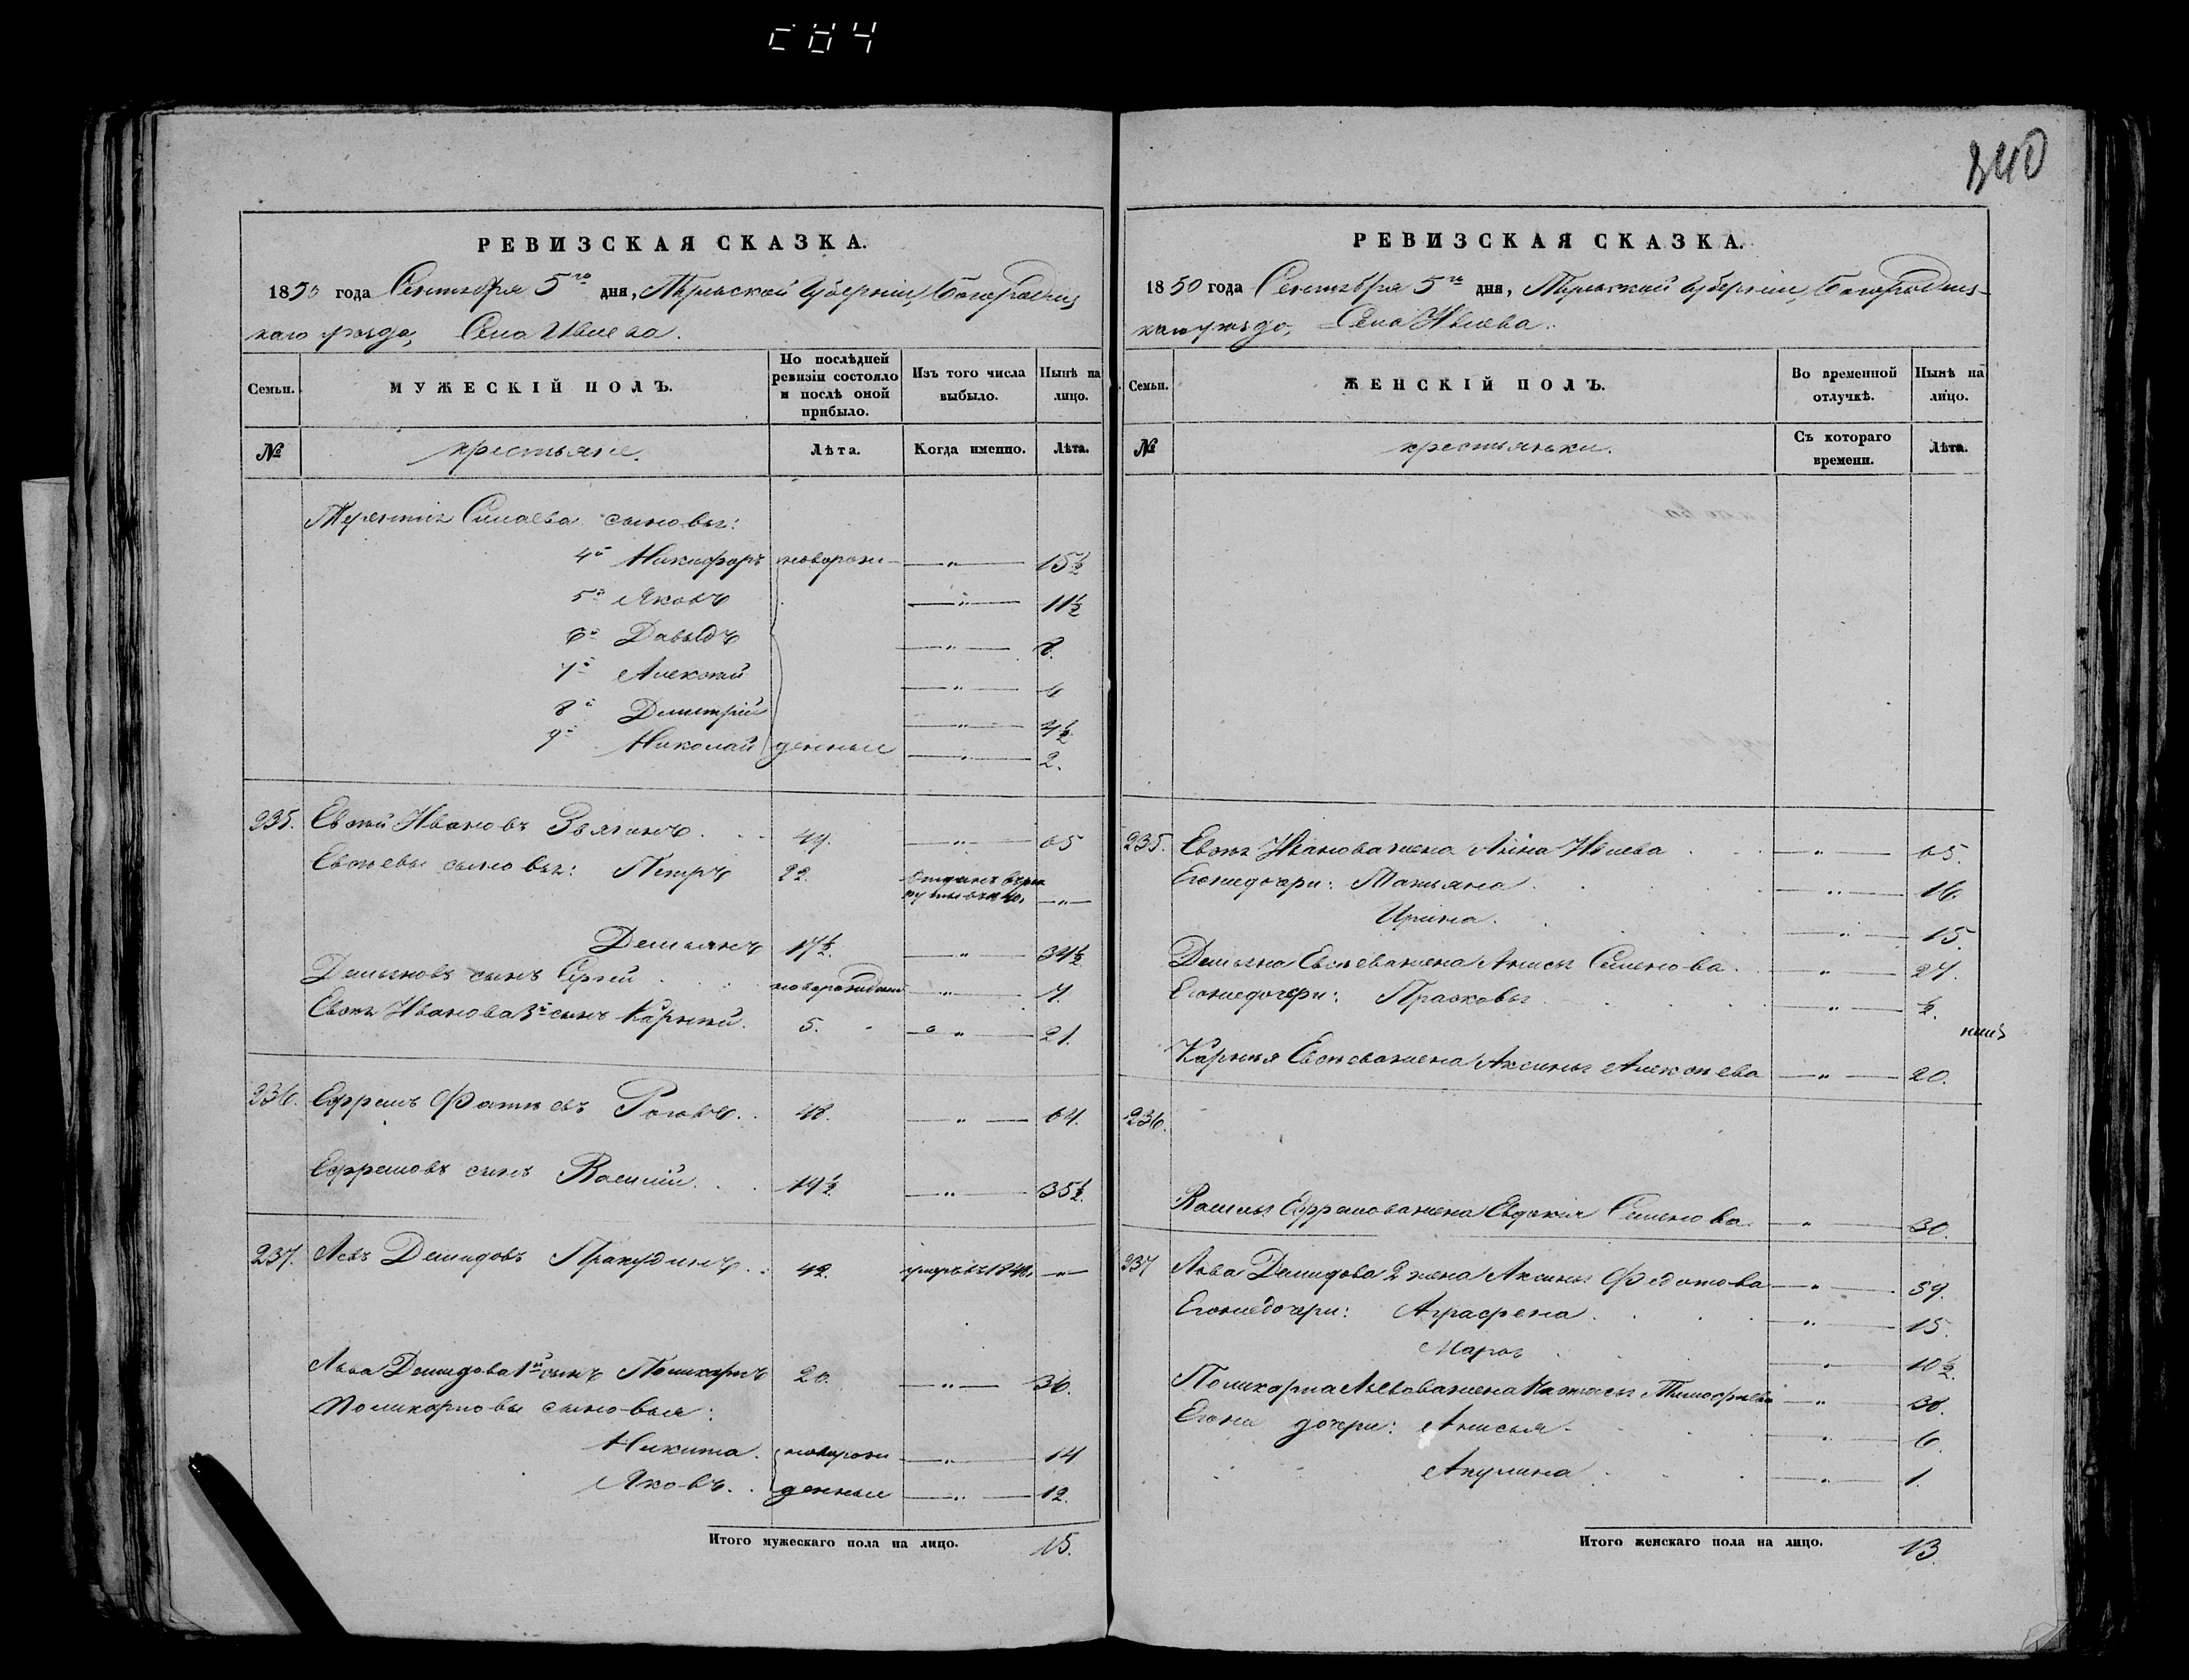 C84
340
РЕВИЗСКАЯ СКАЗКА.
1850 года Сентября 5го дня, Тульской Губернiи, Богородиц
каго уезда, Села Ивлева.
Семьи.
МУЖЕСКІЙ ПОЛЪ.
По послѣдней ревизіи состояло и послѣ оной прибыло.
Изъ того числа выбыло.
Нынѣ на лицо.
№
крестьяне.
Лѣта.
Когда именно.
Лѣта.
Терентiя Силаева сыновья:
4й Никифоръ новорож — " — 15½
5й Яковъ — " — 11½
6й Давыдъ — " — 8.
7й Алексѣй — " — 6
8й Дмитрiй — " — 4½
9й Николай денные — " — 2.
235. Евсѣй Ивановъ Звягинъ. 49. — " — 65
Евсѣевы сыновья: Петръ 22. Отданъ въ рек — " —
Демьянъ 17½. — " — 34½
Демьяновъ сынъ Сергѣй новорожденный — " — 7.
Евсѣя Иванова 3й сынъ Карнѣй. 5. — " — 21.
236. Ефремъ Фатѣевъ Роговъ. 48. — " — 64.
Ефремовъ сынъ Василiй. 19½ — " — 35½.
237. Левъ Демидовъ Пракудинъ. 42. умеръ въ 1840. — " —
Льва Демидова 1й сынъ Поликарпъ 20. — " — 36.
Поликарповы сыновья:
Никита. новорож — " — 14
Яковъ. денные — " — 12.
Итого мужескаго пола на лицо. 15.
РЕВИЗСКАЯ СКАЗКА.
1850 года Сентября 5го дня, Тульской Губернiи, Богородиц-
каго уезда, Села Ивлева.
Семьи.
ЖЕНСКІЙ ПОЛЪ.
Во временной отлучкѣ.
Нынѣ на лицо.
№
крестьянки.
Съ котораго времени.
Лѣта.
235. Евсѣя Иванова жена Анна Ивлева — " — 65.
Егоже дочери: Татьяна. — " — 16.
Ирина. — " — 15.
Демьяна Евсѣева жена Анисья Семенова. — " — 27.
Егоже дочери: Прасковья — " — ½.
Карнѣя Евсѣева жена Аксинья Алексѣева — " — 20.
236.
Василья Ефремова жена Евдокiя Семенова. — " — 30.
237 Льва Демидова 2 жена Аксинья Федотова — " — 59.
Егоже дочери: Аграфена. — " — 15.
Марья — " — 10½.
Поликарпа Львова жена Наталья Тимофеева — " — 30.
Егоже дочери: Анисья — " — 6.
Акулина — " — 1.
Итого женскаго пола на лицо. 13.